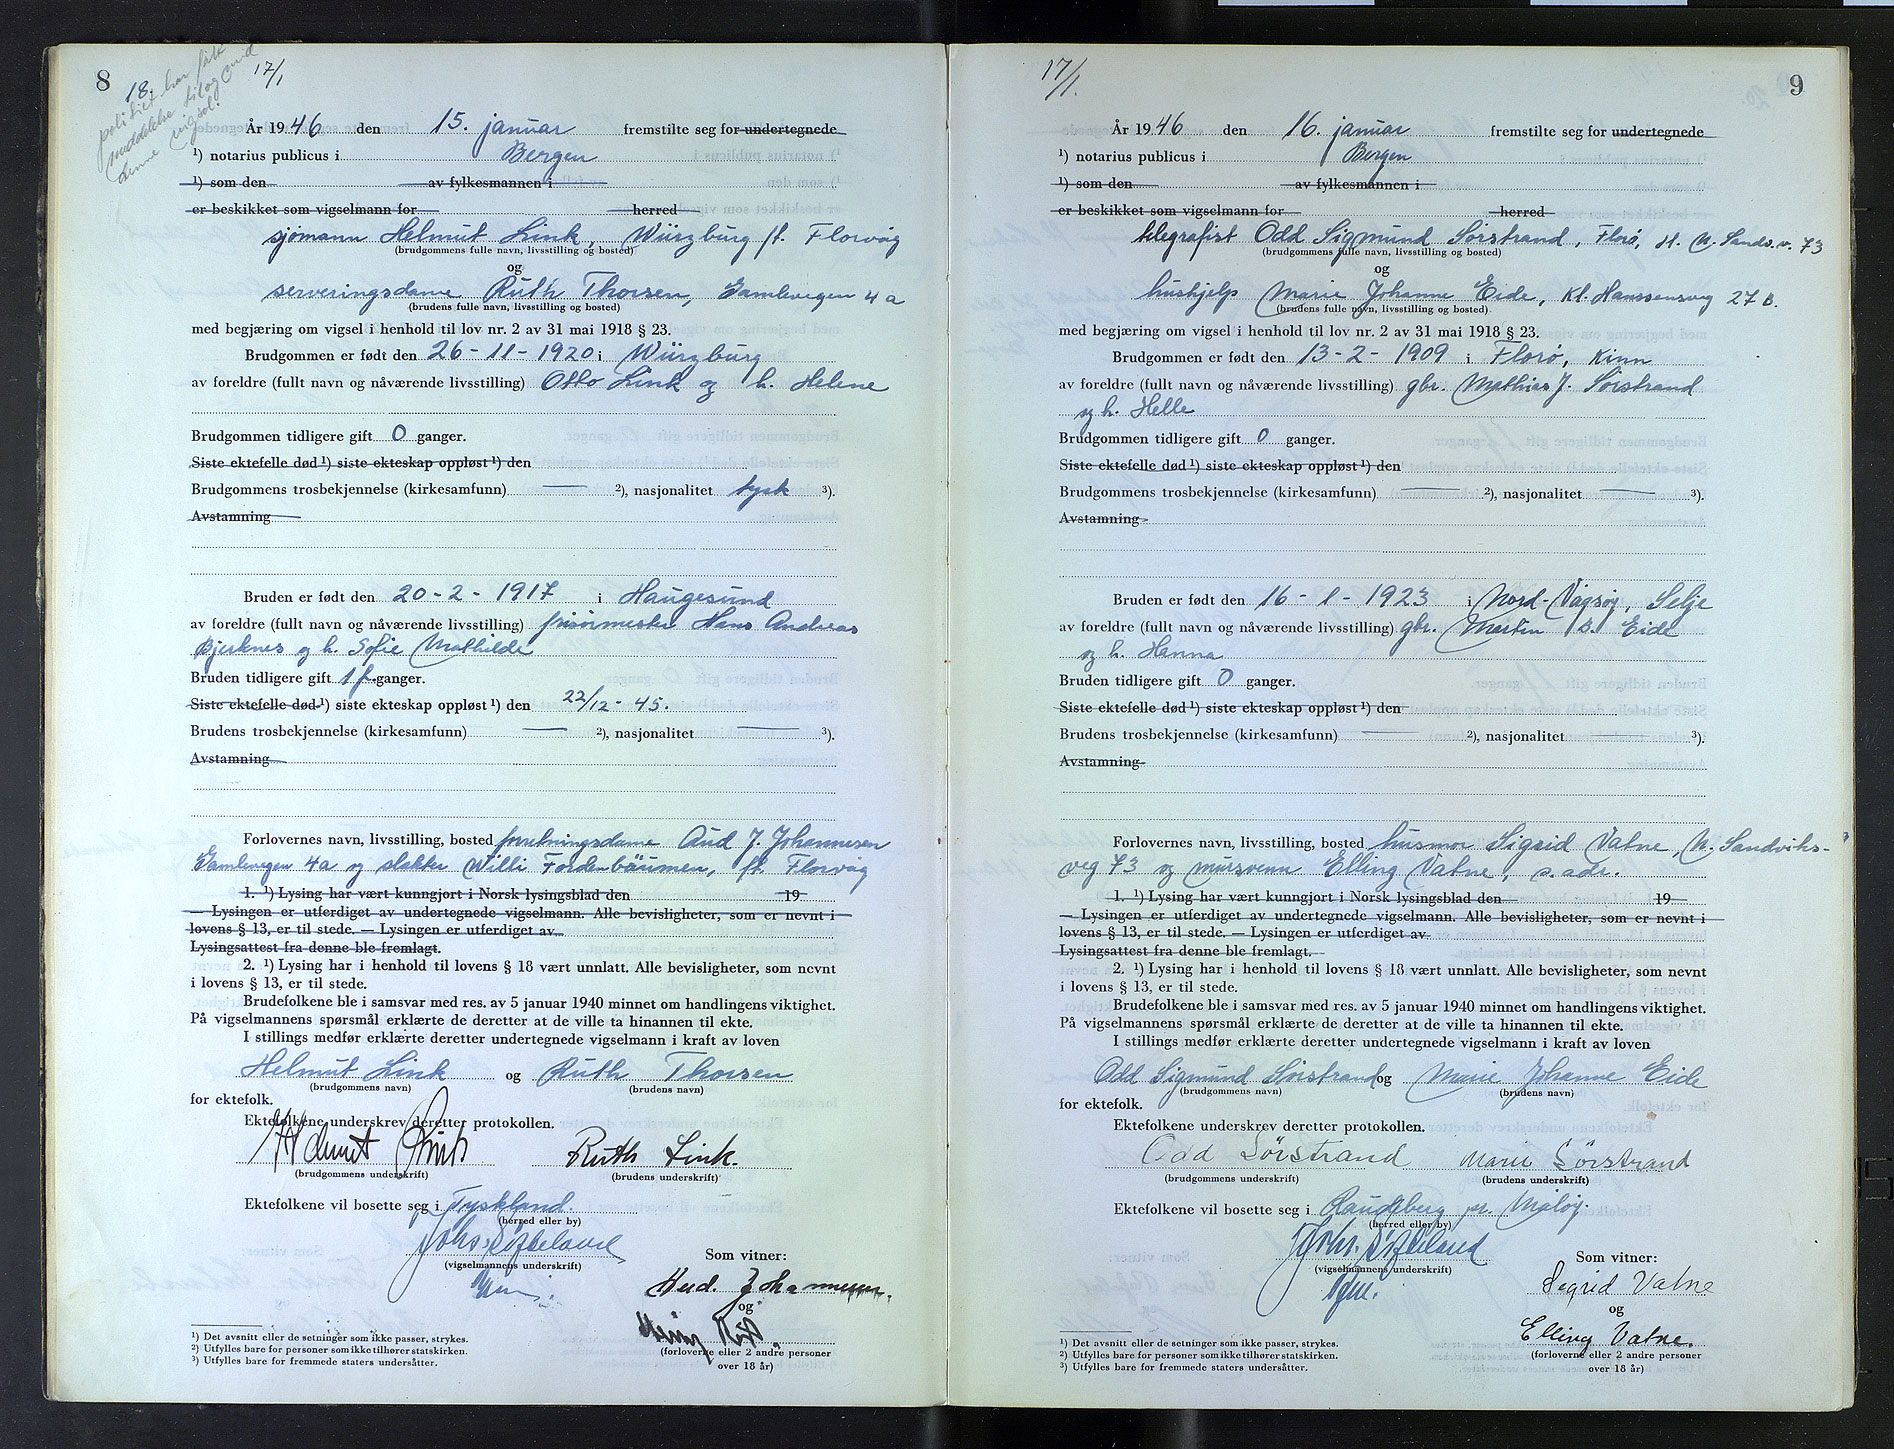 8
18.
17/1
politiet har fått
meddelelse
denne vigsel.
År 1946 den 15. januar fremstilte seg for undertegnede
¹) notarius publicus i Bergen
¹) som den av fylkesmannen i
er beskikket som vigselmann for herred
sjømann Helmut Link, Würzburg f.t. Florvåg
(brudgommens fulle navn, livsstilling og bosted)
og
serveringsdame Ruth Thorsen, Gamlevegen 4a
(brudens fulle navn, livsstilling og bosted)
med begjæring om vigsel i henhold til lov nr. 2 av 31 mai 1918 § 23.
Brudgommen er født den 26-11-1920 i Würzburg
av foreldre (fullt navn og nåværende livsstilling) Otto Link og h. Helene
Brudgommen tidligere gift 0 ganger.
Siste ektefelle død ¹) siste ekteskap oppløst ¹) den
Brudgommens trosbekjennelse (kirkesamfunn) — ²), nasjonalitet tysk ³).
Avstamning
Bruden er født den 20-2-1917 i Haugesund
av foreldre (fullt navn og nåværende livsstilling) frisørmester Hans Andreas
Bjerknes og h. Sofie Mathilde
Bruden tidligere gift 1 g. ganger.
Siste ektefelle død ¹) siste ekteskap oppløst ¹) den 22/12-45.
Brudens trosbekjennelse (kirkesamfunn) — ²), nasjonalitet — ³).
Avstamning
Forlovernes navn, livsstilling, bosted forretningsdame Aud J. Johannesen
Gamlevegen 4a og slakter Willi Fordenbäumen, f.t. Florvåg
1. ¹) Lysing har vært kunngjort i Norsk lysingsblad den 19
— Lysingen er utferdiget av undertegnede vigselmann. Alle bevisligheter, som er nevnt i
lovens § 13, er til stede. — Lysingen er utferdiget av
Lysingsattest fra denne ble fremlagt.
2. ¹) Lysing har i henhold til lovens § 18 vært unnlatt. Alle bevisligheter, som nevnt
i lovens § 13, er til stede.
Brudefolkene ble i samsvar med res. av 5 januar 1940 minnet om handlingens viktighet.
På vigselmannens spørsmål erklærte de deretter at de ville ta hinannen til ekte.
I stillings medfør erklærte deretter undertegnede vigselmann i kraft av loven
Helmut Link og Ruth Thorsen
(brudgommens navn) (brudens navn)
for ektefolk.
Ektefolkene underskrev deretter protokollen.
Helmut Link Ruth Link.
(brudgommens underskrift) (brudens underskrift)
Ektefolkene vil bosette seg i Tyskland.
(herred eller by)
(vigselmannens underskrift)
Som vitner:
Aud. Johannesen.
og
(forloverne eller 2 andre personer
over 18 år)
¹) Det avsnitt eller de setninger som ikke passer, strykes.
²) Utfylles bare for personer som ikke tilhører statskirken.
³) Utfylles bare for fremmede staters undersåtter.
17/1.
9
År 1946 den 16. januar fremstilte seg for undertegnede
¹) notarius publicus i Bergen
¹) som den av fylkesmannen i
er beskikket som vigselmann for herred
telegrafist Odd Sigmund Sørstrand, Florø, st. N. Sandsv. 73
(brudgommens fulle navn, livsstilling og bosted)
og
hushjelp Marie Johanne Eide, Kl. Hanssensveg 27 B.
(brudens fulle navn, livsstilling og bosted)
med begjæring om vigsel i henhold til lov nr. 2 av 31 mai 1918 § 23.
Brudgommen er født den 13-2-1909 i Florø, Kinn
av foreldre (fullt navn og nåværende livsstilling) gbr. Mathias J. Sørstrand
og h. Helle
Brudgommen tidligere gift 0 ganger.
Siste ektefelle død ¹) siste ekteskap oppløst ¹) den
Brudgommens trosbekjennelse (kirkesamfunn) — ²), nasjonalitet — ³).
Avstamning
Bruden er født den 16-1-1923 i Nord-Vågsøy, Selje
av foreldre (fullt navn og nåværende livsstilling) gbr. Martin B. Eide
og h. Hanna
Bruden tidligere gift 0 ganger.
Siste ektefelle død ¹) siste ekteskap oppløst ¹) den
Brudens trosbekjennelse (kirkesamfunn) — ²), nasjonalitet — ³).
Avstamning
Forlovernes navn, livsstilling, bosted husmor Sigrid Vatne, N. Sandviks-
veg 73 og mursvenn Elling Vatne, s. adr.
1. ¹) Lysing har vært kunngjort i Norsk lysingsblad den 19
— Lysingen er utferdiget av undertegnede vigselmann. Alle bevisligheter, som er nevnt i
lovens § 13, er til stede. — Lysingen er utferdiget av
Lysingsattest fra denne ble fremlagt.
2. ¹) Lysing har i henhold til lovens § 18 vært unnlatt. Alle bevisligheter, som nevnt
i lovens § 13, er til stede.
Brudefolkene ble i samsvar med res. av 5 januar 1940 minnet om handlingens viktighet.
På vigselmannens spørsmål erklærte de deretter at de ville ta hinannen til ekte.
I stillings medfør erklærte deretter undertegnede vigselmann i kraft av loven
Odd Sigmund Sørstrand og Marie Johanne Eide
(brudgommens navn) (brudens navn)
for ektefolk.
Ektefolkene underskrev deretter protokollen.
Odd Sørstrand Marie Sørstrand
(brudgommens underskrift) (brudens underskrift)
Ektefolkene vil bosette seg i Raudeberg pr. Måløy.
(herred eller by)
(vigselmannens underskrift)
Som vitner:
Sigrid Vatne
og
Elling Vatne.
(forloverne eller 2 andre personer
over 18 år)
¹) Det avsnitt eller de setninger som ikke passer, strykes.
²) Utfylles bare for personer som ikke tilhører statskirken.
³) Utfylles bare for fremmede staters undersåtter.